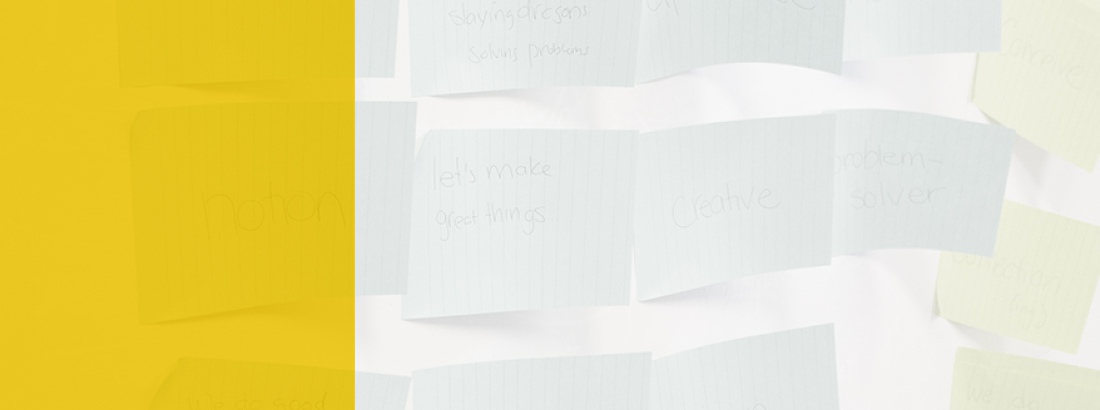 slaying dragons
solving problems
notion
let's make
great things
creative
problem-
solver
we do good